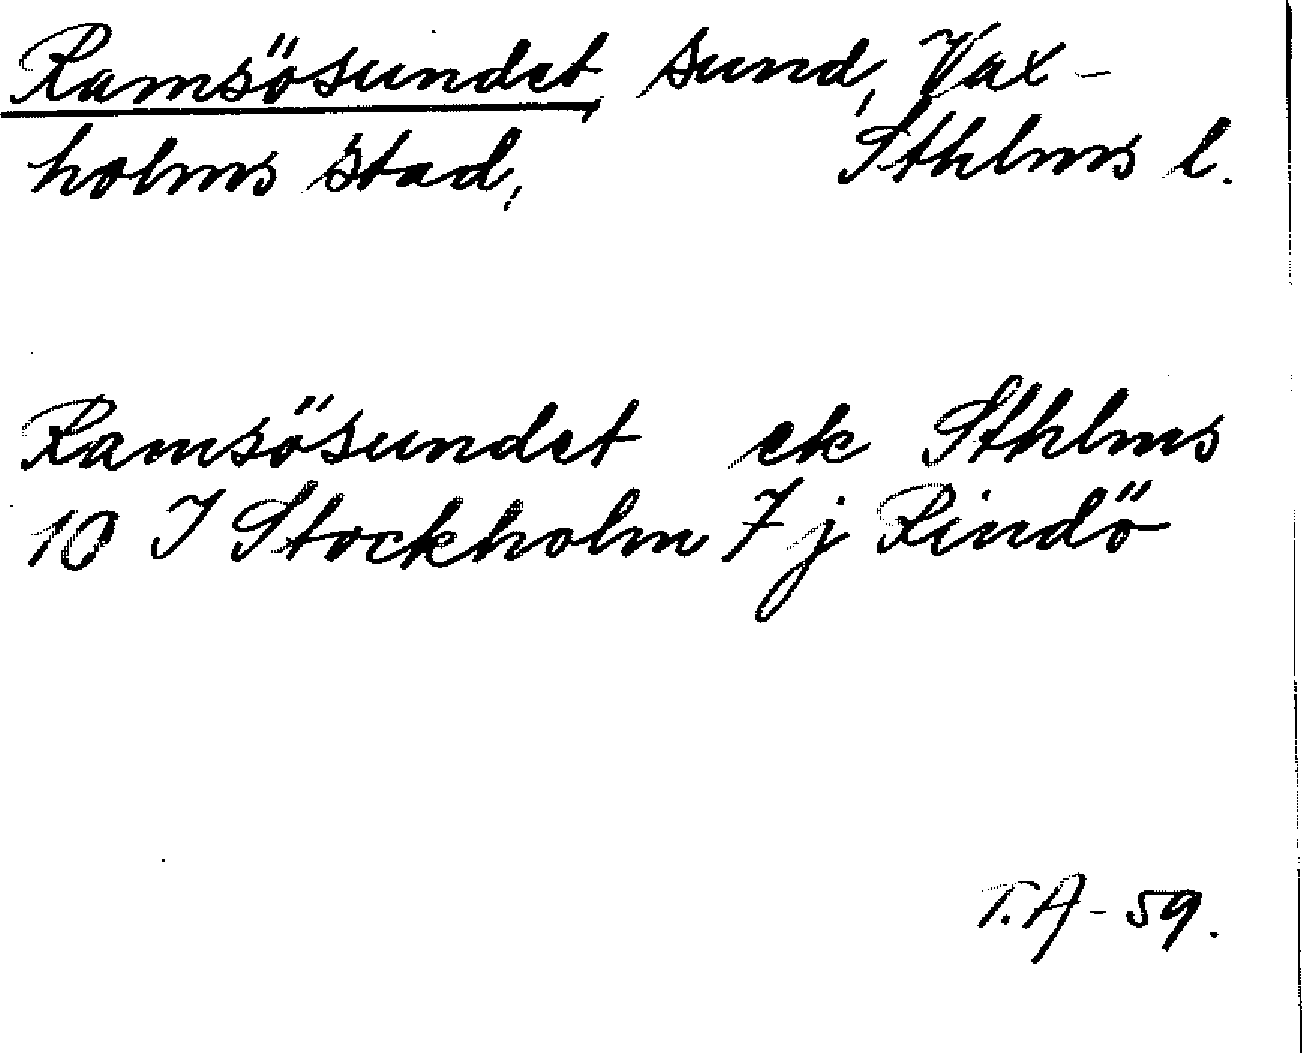 Ramsösundet, sund, Vax-
holms stad, Sthlms l.
Ramsösundet ek Sthlms
10 I Stockholm 7 j Rindö
T.A-59.